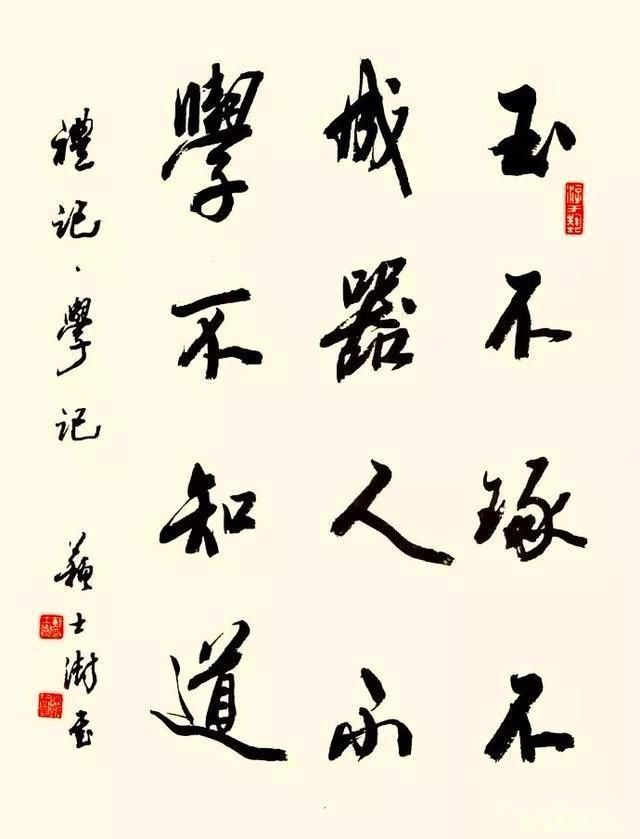 玉不琢不
成器人不
學不知道
禮記·學記
蘇士澍書